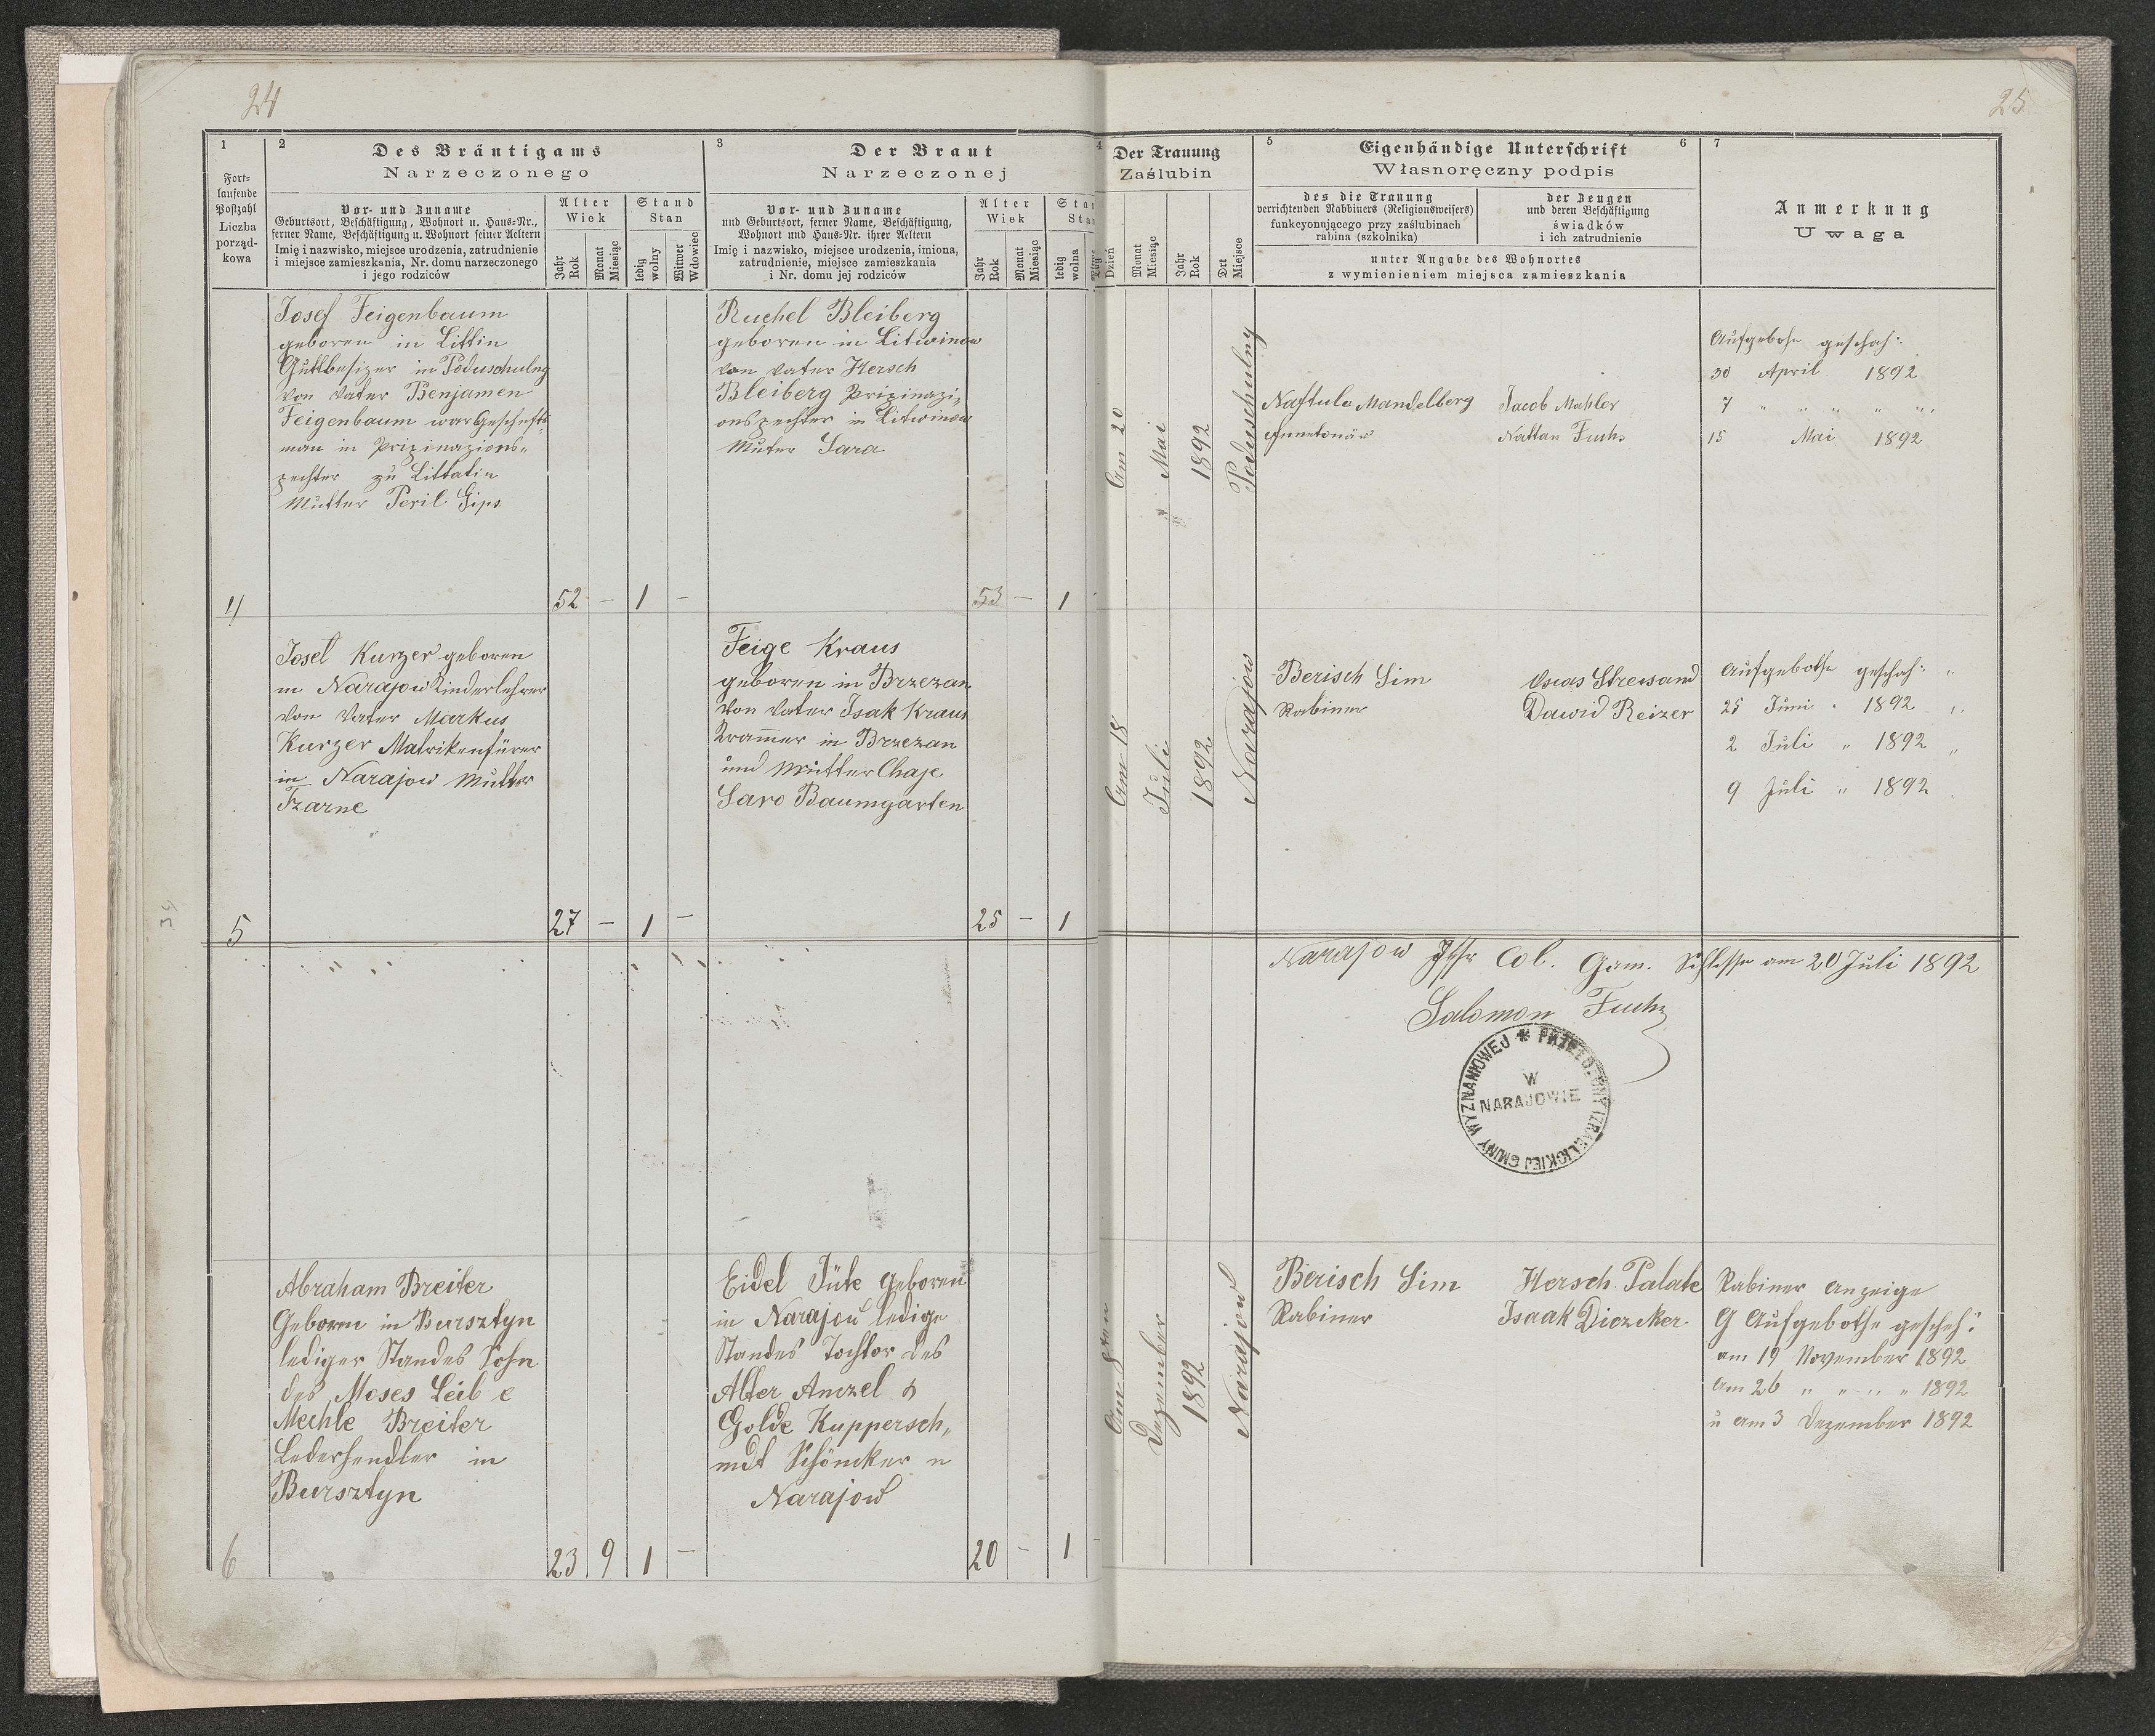 24
25
1
2
Des Bräutigams
Narzeczonego
3
Der Braut
Narzeczonej
4
Der Trauung
Zaślubin
5
Eigenhändige Unterschrift
6
Własnoręczny podpis
7
Fort-
laufende
Postzahl
Liczba
porząd-
kowa
Vor- und Zuname
Geburtsort, Beschäftigung, Wohnort u. Haus-Nr.,
ferner Name, Beschäftigung u. Wohnort seiner Aeltern
Imię i nazwisko, miejsce urodzenia, zatrudnienie
i miejsce zamieszkania, Nr. domu narzeczonego
i jego rodziców
Alter
Wiek
Stand
Stan
Jahr
Rok
Monat
Miesiąc
ledig
wolny
Witwer
Wdowiec
Vor- und Zuname
und Geburtsort, ferner Name, Beschäftigung,
Wohnort und Haus-Nr. ihrer Aeltern
Imię i nazwisko, miejsce urodzenia, imiona,
zatrudnienie, miejsce zamieszkania
i Nr. domu jej rodziców
Alter
Wiek
Jahr
Rok
Monat
Miesiąc
ledig
wolna
Dzień
Monat
Miesiąc
Jahr
Rok
Ort
Miejsce
des die Trauung
verrichtenden Rabbiners (Religionsweisers)
funkcyonującego przy zaślubinach
rabina (szkolnika)
der Zeugen
und deren Beschäftigung
świadków
i ich zatrudnienie
unter Angabe des Wohnortes
z wymienieniem miejsca zamieszkania
Anmerkung
Uwaga
Josef Feigenbaum
geboren in Littin
Guttbesizer in Poduschulny
von Vater Benjamen
Feigenbaum war Geschefts-
man in Prizinazions-
pechter zu Littatin
Mutter Peril Gips
4
52 – 1 –
Ruchel Bleiberg
geboren in Litwinow
von Vater Hersch
Bleiberg Prizinazi-
onspechter in Litwinow
Muter Sara
53 – 1
Am 20
Mai
1892
Poduschulny
Naftule Mandelberg
Jacob Mahler
Nattan Fuchs
Aufgebothe geschah:
30 April 1892
7 " " " " "
15 Mai 1892
Josel Kurzer geboren
in Narajow Kinderlehrer
von Vater Markus
Kurzer Matrikenfürer
in Narajow Mutter
Tzarne
5
27 – 1 –
Feige Kraus
geboren in Brzezan
von Vater Isak Kraus
Kramer in Brzezan
und Mutter Chaje
Sare Baumgarten
25 – 1
Am 18
Juli
1892
Narajow
Berisch Sim
Rabiner
Osias Streisand
Dawid Reizer
Aufgebothe geschah: "
25 Juni " 1892 "
2 Juli " 1892 "
9 Juli " 1892
Narajow Col. Gem. Schlosse am 20 Juli 1892
Salomon Fuchs
PRZEŁOŻONY IZRAELICKIEJ GMINY WYZNANIOWEJ
W
NARAJOWIE
Abraham Breiter
Geboren in Bursztyn
lediger Standes Sohn
des Moses Leib e
Mechle Breiter
Lederhendler in
Bursztyn
6
23 9 1 –
Eidel Jüte geboren
in Narajow ledige
Standes Tochter des
Alter Amzel &
Golde Kuppersch-
midt Schönker in
Narajow
20 – 1 –
Am 8ten
Dezember
1892
Narajow
Berisch Sim
Rabiner
Hersch Palate
Isaak Diczcker
Rabiner Anzeige
G Aufgebothe gescheh:
am 19 November 1892
am 26 " " " " 1892
u am 3 Dezember 1892